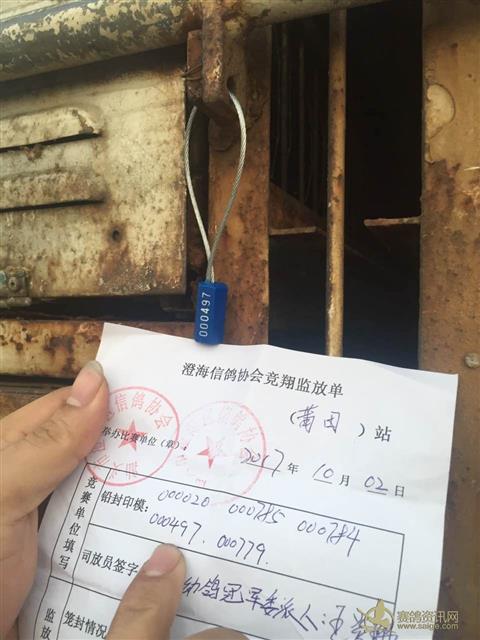 000497
澄海信鸽协会竞翔监放单
(莆田)站
举办比赛单位(章):
2017年10月02日
信鸽协会
竞赛单位填写
铅封印模: 000020 000785 000784
000497. 000779.
司放员签字
幼鸽冠军委派人:王
监放
笼封情况
赛鸽资讯网
www.saige.com